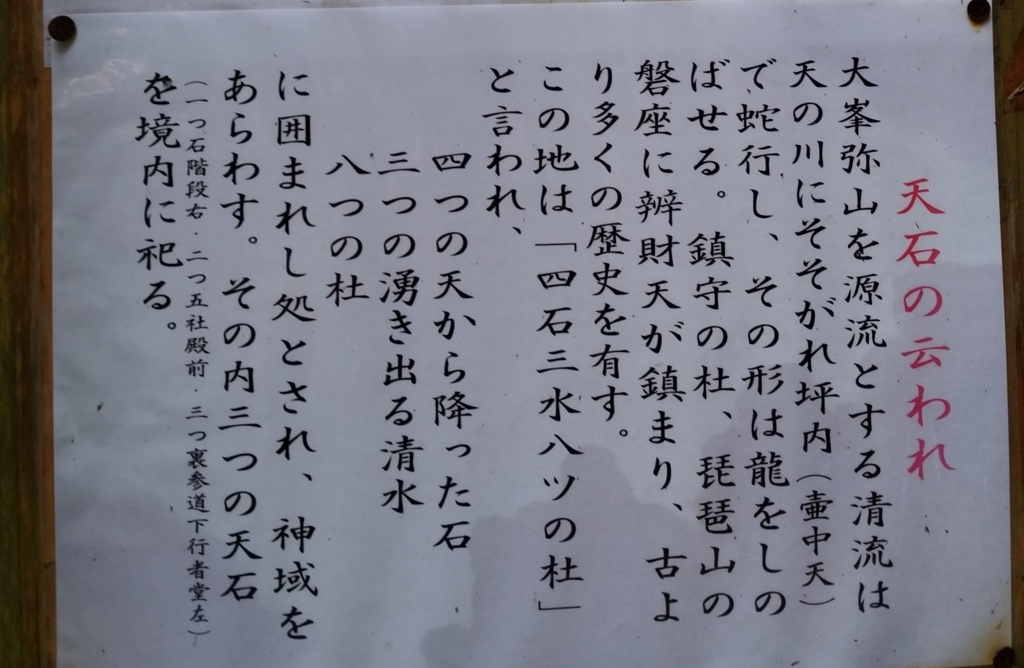 天石の云われ
大峯弥山を源流とする清流は
天の川にそそがれ坪内（壷中天）
で蛇行し、その形は龍をしの
ばせる。鎮守の杜、琵琶山の
磐座に辨財天が鎮まり、古よ
り多くの歴史を有す。
この地は「四石三水八ツの杜」
と言われ、
四つの天から降った石
三つの湧き出る清水
八つの杜
に囲まれし処とされ、神域を
あらわす。その内三つの天石
（一つ石階段右・二つ五社殿前・三つ裏参道下行者堂左）
を境内に祀る。